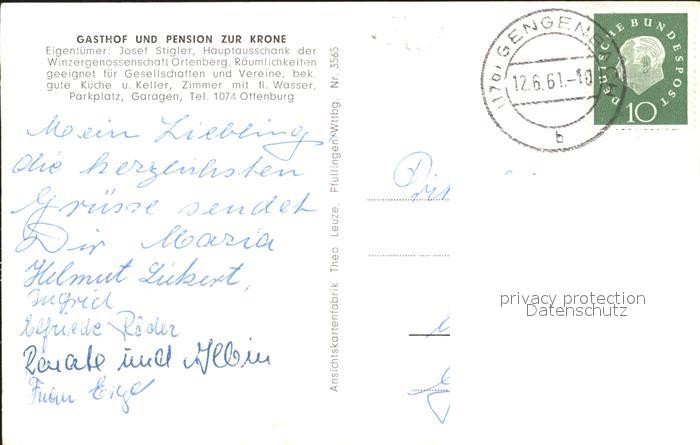 GASTHOF UND PENSION ZUR KRONE
Eigentümer: Josef Stigler, Hauptausschank der
Winzergenossenschaft Ortenberg, Räumlichkeiten
geeignet für Gesellschaften und Vereine, bek.
gute Küche u. Keller, Zimmer mit fl. Wasser,
Parkplatz, Garagen, Tel. 1074 Offenburg
Mein Liebling
die herzlichsten
Grüsse sendet
Dir Maria
Helmut
Ingrid
Elfriede Röder
Renate und Albin
Ansichtskartenfabrik Theo Leuze, Pfullingen-Wttbg. Nr. 3565
(17b) GENGENB
12.6.61.-10
b
DEUTSCHE BUNDESPOST
10
privacy protection
Datenschutz